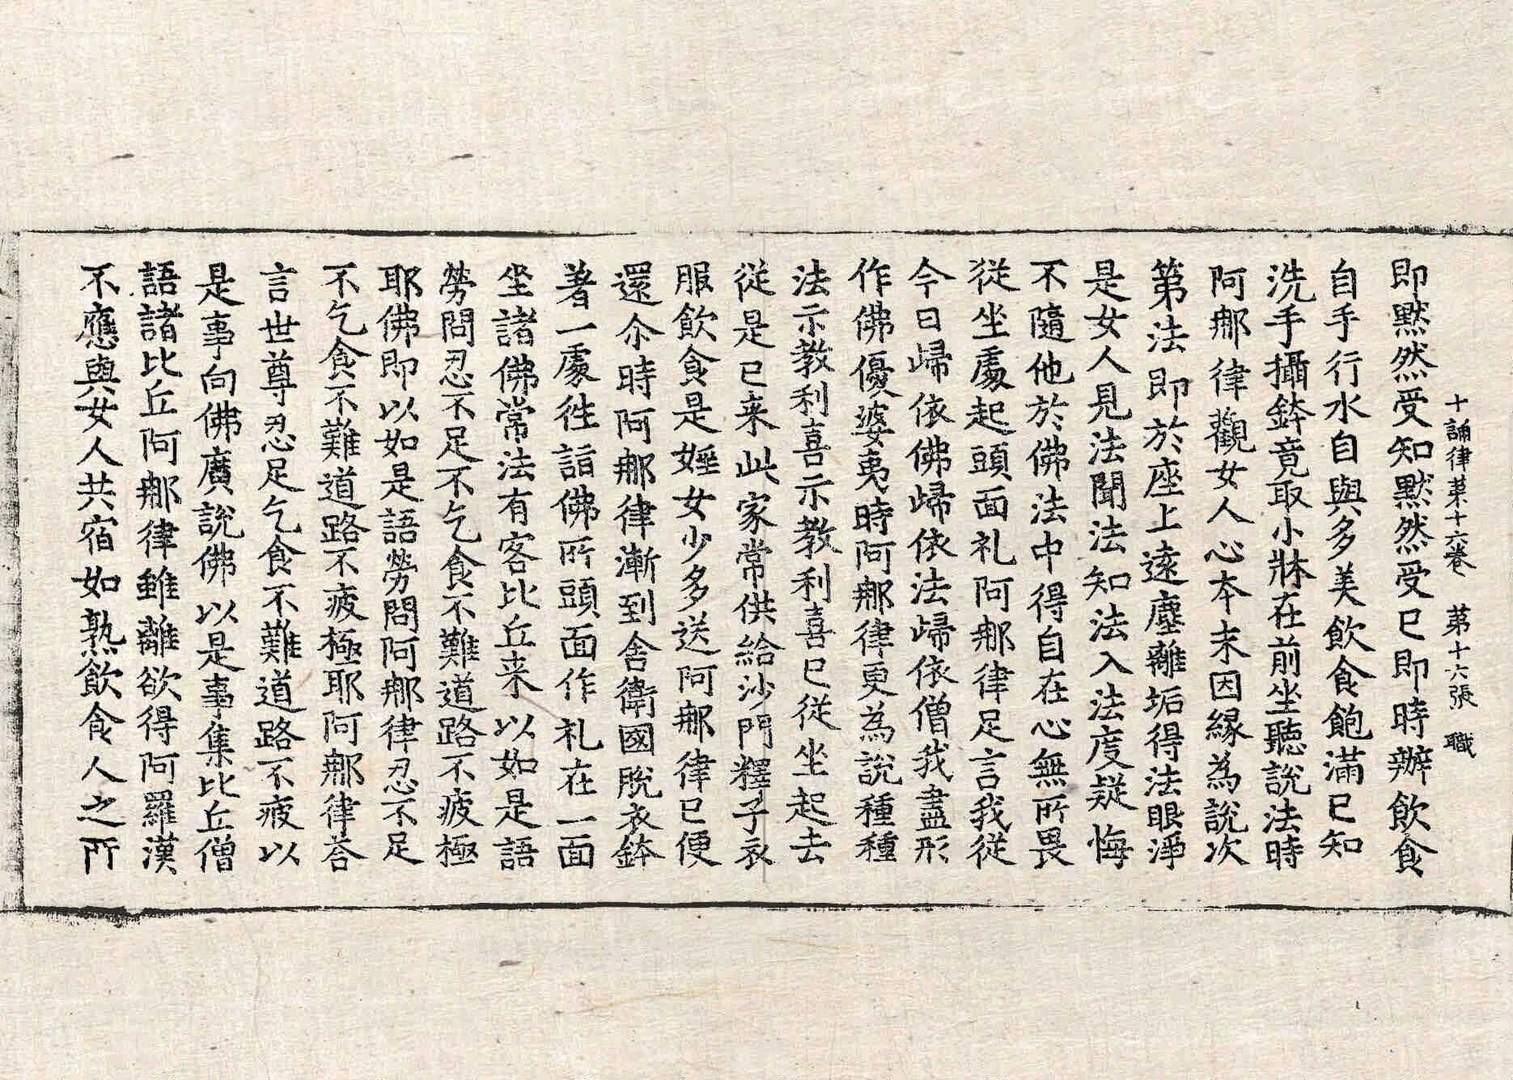 十誦律苐十六卷 第十六張 職
即黙然受知黙然受已即時辦飲食
自手行水自與多美飲食飽滿已知
洗手攝鉢竟取小牀在前坐聽說法時
阿㝹律觀女人心本末因緣為說次
第法即於座上遠塵離垢得法眼淨
是女人見法聞法知法入法度疑悔
不隨他於佛法中得自在心無所畏
從坐處起頭面礼阿㝹律足言我從
今日歸依佛歸依法歸依僧我盡形
作佛優婆夷時阿㝹律更為說種種
法示教利喜示教利喜已從坐起去
從是已来此家常供給沙門釋子衣
服飲食是婬女少多送阿㝹律已便
還尒時阿㝹律漸到舍衛國脫衣鉢
著一處徃詣佛所頭面作礼在一面
坐諸佛常法有客比丘来以如是語
勞問忍不足不乞食不難道路不疲極
耶佛即以如是語勞問阿㝹律忍不足
不乞食不難道路不疲極耶阿㝹律荅
言世尊忍足乞食不難道路不疲以
是事向佛廣說佛以是事集比丘僧
語諸比丘阿㝹律雖離欲得阿羅漢
不應與女人共宿如熟飲食人之所